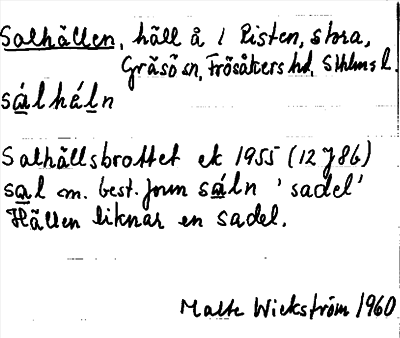 Salhällen, häll å 1 Risten, stora,
Gräsö sn, Frösåkers hd, Sthlms l.
sálháln
Salhällsbrottet ek 1955 (12 J 8b)
sal m. best. form sáln 'sadel'
Hällen liknar en sadel.
Malte Wickström 1960